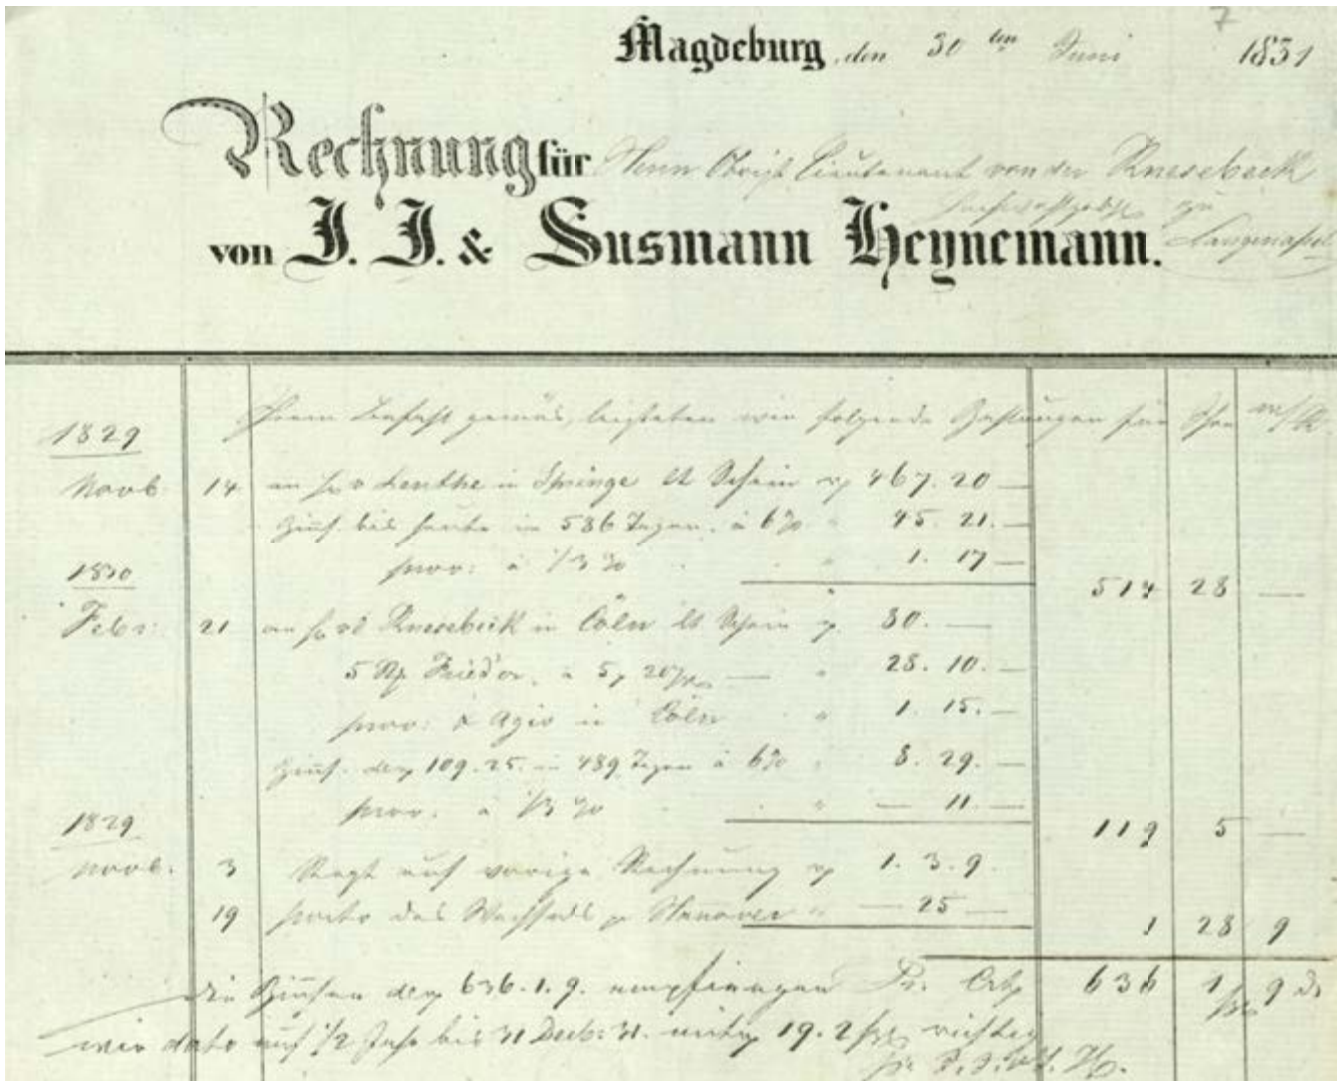 7
Magdeburg, den 30 ten Juni 1831
Rechnung für Herrn Obrist Lieutenant von dem Knesebeck
zu
von J. J. & Susmann Heynemann. Langenapel
1829 Ihrem Befehl gemäs, leisteten wir folgende Zahlungen für Ihre
Novb. 14 an H v Lenthe in Springe lt Schein 467. 20 —
Zins bis heute in 586 Tagen à 6% " 45. 21. —
prov: à 1/3 % " 1. 17 —
514 28 —
1830
Febr: 21 an H v d Knesebeck in Cöln lt Schein 80. —
5 Friedor. à 5, 20 — " 28. 10. —
prov: & Agio in Cöln " 1. 15. —
Zins. 109. 25. in 489 Tagen à 6% " 8. 29. —
prov. à 1/3 % " — 11. —
119 5 —
1829
Novb. 3 Rest auf vorige Rechnung 1. 3. 9.
19 porto des Wechsels p Hanover " — 25 —
1 28 9
die Zinsen 636. 1. 9. empfingen Pr. Crt 636 1 9
wir dato auf 1/2 Jahr bis 31 Decb: 31. mit 19. 2 richtig